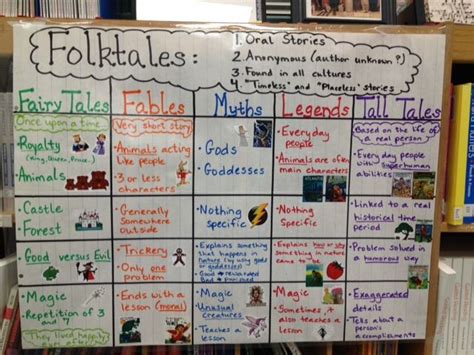 Folktales:
1. Oral Stories
2. Anonymous (author unknown?)
3. Found in all cultures
4. "Timeless" and "Placeless" stories
Fairy Tales
Once upon a time
• Royalty
(King, Queen, Prince..)
• Animals
• Castle
• Forest
• Good versus Evil
• Magic
• Repetition of 3
and 7
They lived happily
Fables
Very short story
• Animals acting
like people
• 3 or less
characters
• Generally
Somewhere
outside
• Trickery
• Only one
problem
• Ends with a
lesson (moral)
Myths
• Gods
• Goddesses
• Nothing
Specific
• Explains
something that
happens in
nature (by using gods
or goddesses)
• Good = rewarded
Bad = punished
• Magic
• Unusual
Creatures
• Teaches a
lesson
Legends
• Everyday
people
• Animals are often
main characters
• Nothing
Specific
• Explains how or why
something in nature
came to be
• Magic
• Sometimes, it
also teaches a
lesson
Tall Tales
Based on the life of
a real person
• Everyday people
with superhuman
abilities
• Linked to a real
historical time
period
• Problem solved in
a humorous way
• Exaggerated
details
• Tells about a
person's
accomplishments